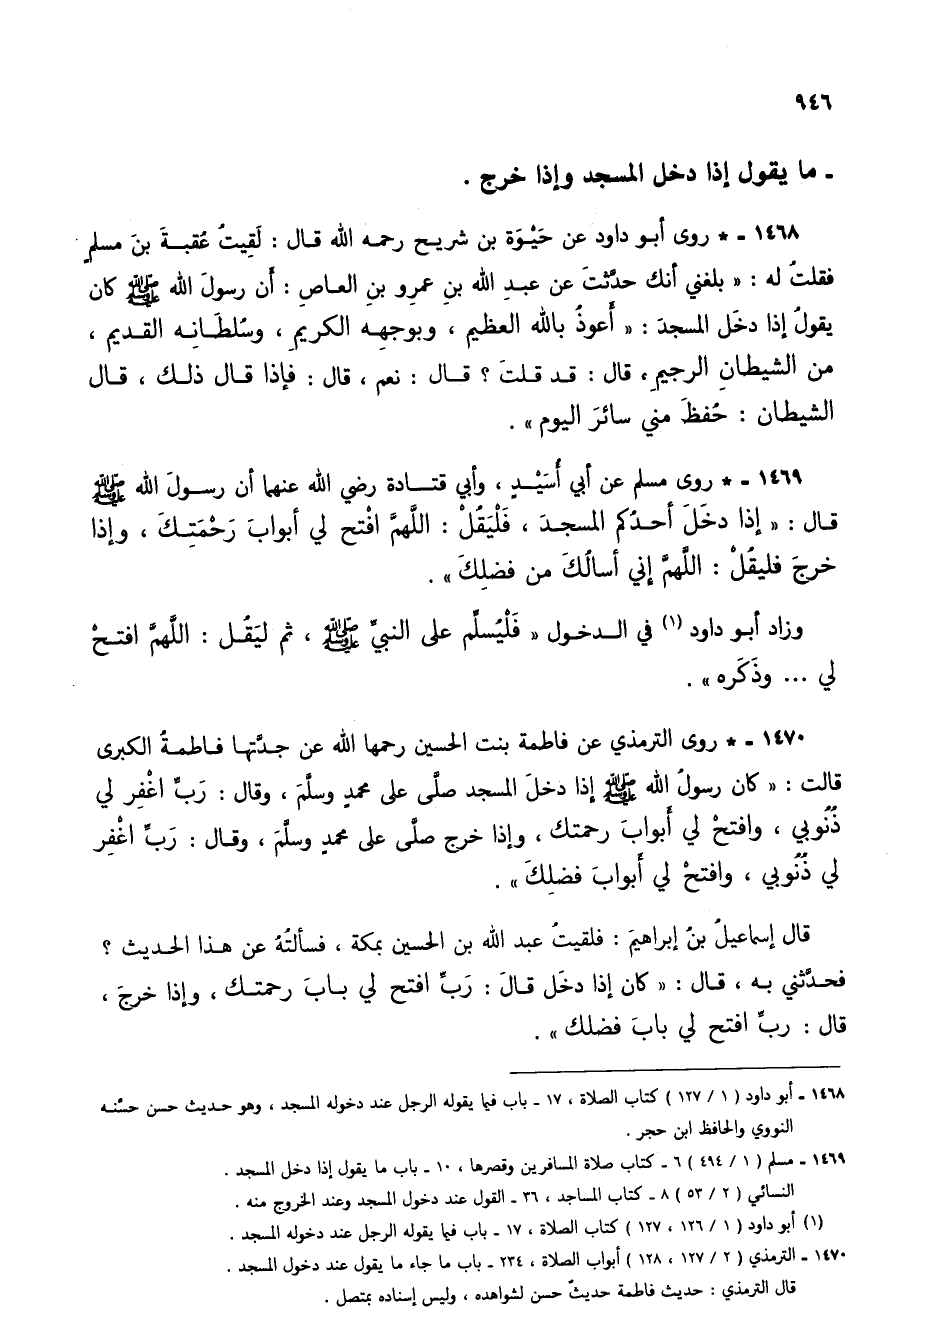 ٩٤٦
ـ ما يقول إذا دخل المسجد وإذا خرج .
١٤٦٨ ـ * روى أبو داود عن حَيْوَة بن شريح رحمه الله قال : لَقِيتُ عُقبةَ بنَ مسلمٍ
فقلتُ له : « بلغني أنك حدَّثتَ عن عبدِ الله بنِ عمرو بنِ العاصِ : أن رسولَ الله ﷺ كان
يقولُ إذا دخَل المسجدَ : « أعوذُ بالله العظيم ، وبوجهِه الكريمِ ، وسُلطَانِه القديم ،
من الشيطانِ الرجيمِ ، قال : قد قلتَ ؟ قال : نعم ، قال : فإذا قال ذلك ، قال
الشيطان : حُفظَ مني سائرَ اليوم » .
١٤٦٩ ـ * روى مسلم عن أبي أُسَيْدٍ ، وأبي قتادة رضي الله عنهما أن رسولَ الله ﷺ
قال : « إذا دخَلَ أحدُكم المسجدَ ، فَلْيَقُلْ : اللهمَّ افْتح لي أبوابَ رَحْمَتِكَ ، وإذا
خرجَ فليقُلْ : اللَّهمَّ إني أسألُكَ من فضلِكَ » .
وزاد أبو داود (١) في الدخول « فَلْيُسلِّم على النبيِّ ﷺ ، ثم ليَقُل : اللَّهمَّ افتحْ
لي ... وذَكَره » .
١٤٧٠ ـ * روى الترمذي عن فاطمة بنت الحسين رحمها الله عن جدَّتِها فاطمةُ الكبرى
قالت : « كان رسولُ الله ﷺ إذا دخلَ المسجد صلَّى على محمدٍ وسلَّمَ ، وقال : رَبِّ اغْفِر لي
ذُنُوبي ، وافتحْ لي أبوابَ رحمتك ، وإذا خرج صلَّى على محمدٍ وسلَّمَ ، وقال : رَبِّ اغْفِر
لي ذُنُوبي ، وافتحْ لي أبوابَ فضلِكَ » .
قال إسماعيلُ بنُ إبراهيمَ : فلقيتُ عبد الله بن الحسين بمكة ، فسألتُهُ عن هذا الحديث ؟
فحدَّثني به ، قال : « كان إذا دخَل قالَ : رَبِّ افتح لي بابَ رحمتك ، وإذا خرجَ ،
قال : ربِّ افتح لي بابَ فضلك » .
١٤٦٨ ـ أبو داود ( ١ / ١٢٧ ) كتاب الصلاة ، ١٧ ـ باب فيما يقوله الرجل عند دخوله المسجد ، وهو حديث حسن حسَّنه
النووي والحافظ ابن حجر .
١٤٦٩ ـ مسلم ( ١ / ٤٩٤ ) ٦ ـ كتاب صلاة المسافرين وقصرها ، ١٠ ـ باب ما يقول إذا دخل المسجد .
النسائي ( ٢ / ٥٣ ) ٨ ـ كتاب المساجد ، ٣٦ ـ القول عند دخول المسجد وعند الخروج منه .
(١) أبو داود ( ١ / ١٢٦ ، ١٢٧ ) كتاب الصلاة ، ١٧ ـ باب فيما يقوله الرجل عند دخوله المسجد .
١٤٧٠ ـ الترمذي ( ٢ / ١٢٧ ، ١٢٨ ) أبواب الصلاة ، ٢٣٤ ـ باب ما جاء ما يقول عند دخول المسجد .
قال الترمذي : حديث فاطمة حديثٌ حسن لشواهده ، وليس إسناده بمتصل .